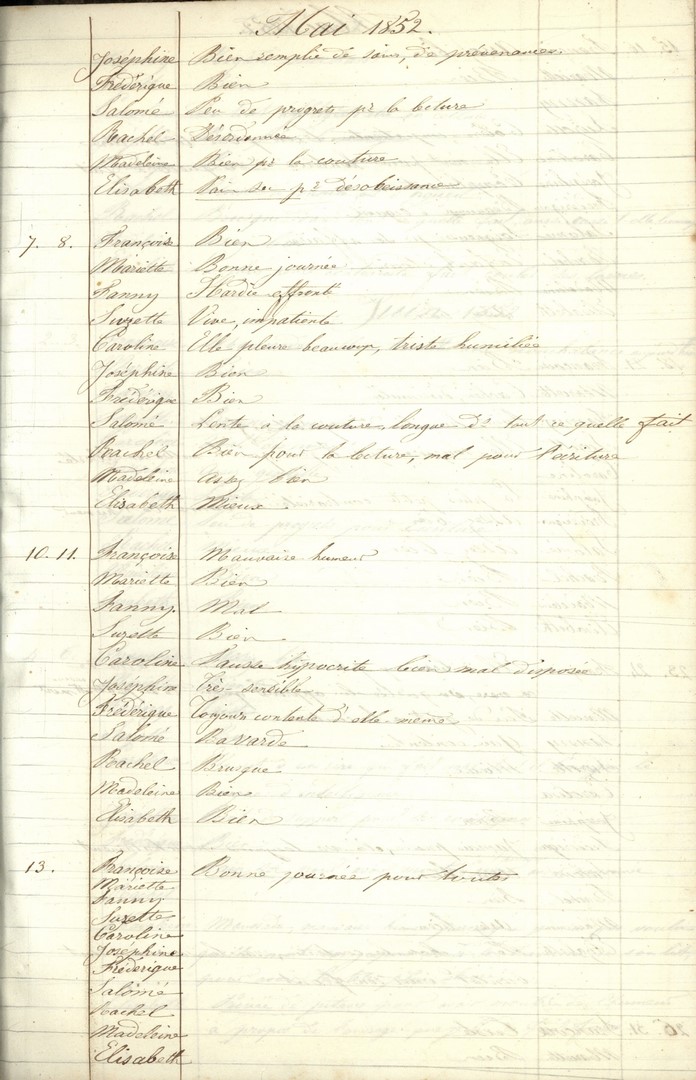 Mai 1852.
Joséphine Bien remplie de soins, de prévenances
Frédérique Bien
Salomé Peu de progrets pr la lecture
Rachel Désordonnée
Madeleine Bien pr la couture
Elisabeth Pain sec pr désobeissance
7. 8. Françoise Bien
Mariette Bonne journée
Fanny Hardie effronté
Suzette Vive, impatiente
Caroline Elle pleure beaucoup, triste humiliée
Joséphine Bien
Frédérique Bien
Salomé Lente à la couture, longue ds tout ce quelle fait
Rachel Bien pour la lecture, mal pour l'écriture
Madeleine assez bien
Elisabeth Mieux
10. 11. Françoise Mauvaise humeur
Mariette Bien
Fanny. Mal
Suzette Bien
Caroline Fausse hypocrite bien mal disposée
Joséphine Très-sensible
Frédérique Toujours contente d'elle même
Salomé Bavarde
Rachel Brusque
Madeleine Bien
Elisabeth Bien
13. Françoise Bonne journée pour toutes
Mariette
Fanny
Suzette
Caroline
Joséphine
Frédérique
Salomé
Rachel
Madeleine
Elisabeth